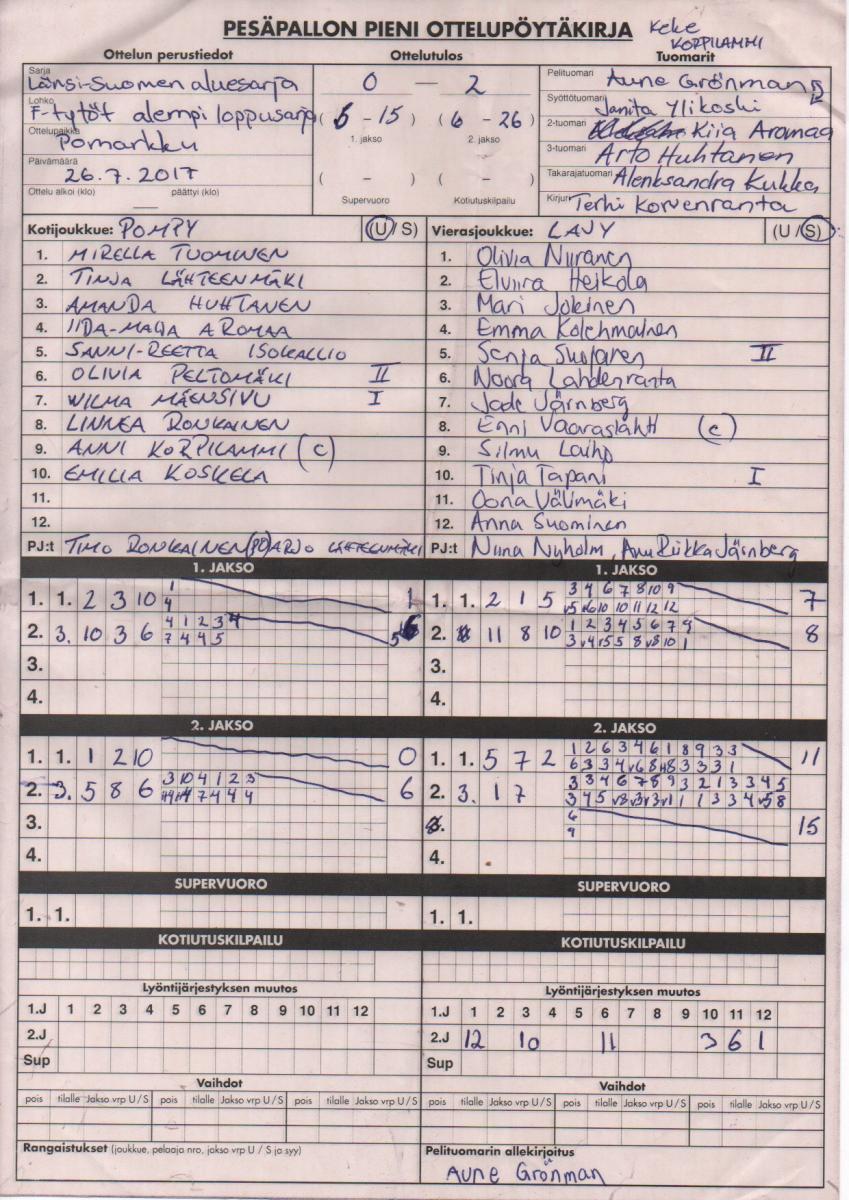 PESÄPALLON PIENI OTTELUPÖYTÄKIRJA
Keke
KORPILAMMI
Ottelun perustiedot
Ottelutulos
Tuomarit
Sarja
Länsi-Suomen aluesarja
Lohko
F-tytöt alempi loppusarja
Ottelupaikka
Pomarkku
Päivämäärä
26.7.2017
Ottelu alkoi (klo) päättyi (klo)
0 — 2
(6 - 15) (6 - 26)
1. jakso 2. jakso
( - ) ( - )
Supervuoro Kotiutuskilpailu
Pelituomari Aune Grönman
Syöttötuomari Janita Ylikoski
2-tuomari Kiia Aromaa
3-tuomari Arto Huhtanen
Takarajatuomari Alenksandra Kukka
Kirjuri Terhi Korvenranta
Kotijoukkue: POMPY (U / S)
1. MIRELLA TUOMINEN
2. TINJA LÄHTEENMÄKI
3. AMANDA HUHTANEN
4. IIDA-MAIJA AROMAA
5. SANNI-REETTA ISOKALLIO
6. OLIVIA PELTOMÄKI II
7. WILMA MÄENSIVU I
8. LINNEA RONKAINEN
9. ANNI KORPILAMMI (C)
10. EMILIA KOSKELA
11.
12.
PJ:t TIMO RONKAINEN (PJ) ARJO LÄHTEENMÄKI
Vierasjoukkue: LAVY (U / S)
1. Olivia Niiranen
2. Elviira Heikola
3. Mari Jokinen
4. Emma Kolehmainen
5. Senja Suolanen II
6. Noora Lahdenranta
7. Jade Järnberg
8. Enni Vaaraslahti (c)
9. Silmu Laiho
10. Tinja Tapani I
11. Oona Välimäki
12. Anna Suominen
PJ:t Niina Nyholm, Anu Riikka Järnberg
1. JAKSO
1. 1. 2 3 10 1 1
4
2. 3. 10 3 6 4 1 2 3 4
7 4 4 5
3.
4.
1. JAKSO
1. 1. 2 1 5 3 4 6 7 8 10 9 7
v5 v6 10 10 11 12 12
2. 11 8 10 1 2 3 4 5 6 7 9 8
3 v4 v5 5 8 v8 10 1
3.
4.
2. JAKSO
1. 1. 1 2 10 0
2. 3. 5 8 6 3 10 4 1 2 3 6
7 4 4 4
3.
4.
2. JAKSO
1. 1. 5 7 2 1 2 6 3 4 6 1 8 9 3 3 11
6 3 3 4 v6 8 8 3 3 3 1
2. 3. 1 7 3 3 4 6 7 8 9 3 2 1 3 3 4 5
3 4 5 v3 v3 v3 v1 1 1 3 3 4 v5 8
6 15
9
4.
SUPERVUORO
1. 1.
SUPERVUORO
1. 1.
KOTIUTUSKILPAILU
KOTIUTUSKILPAILU
Lyöntijärjestyksen muutos
1.J 1 2 3 4 5 6 7 8 9 10 11 12
2.J
Sup
Lyöntijärjestyksen muutos
1.J 1 2 3 4 5 6 7 8 9 10 11 12
2.J 12 10 11 3 6 1
Sup
Vaihdot
pois tilalle Jakso vrp U / S pois tilalle Jakso vrp U / S pois tilalle Jakso vrp U / S
Vaihdot
pois tilalle Jakso vrp U / S pois tilalle Jakso vrp U / S pois tilalle Jakso vrp U / S
Rangaistukset (joukkue, pelaaja nro, jakso vrp U / S ja syy)
Pelituomarin allekirjoitus
Aune Grönman